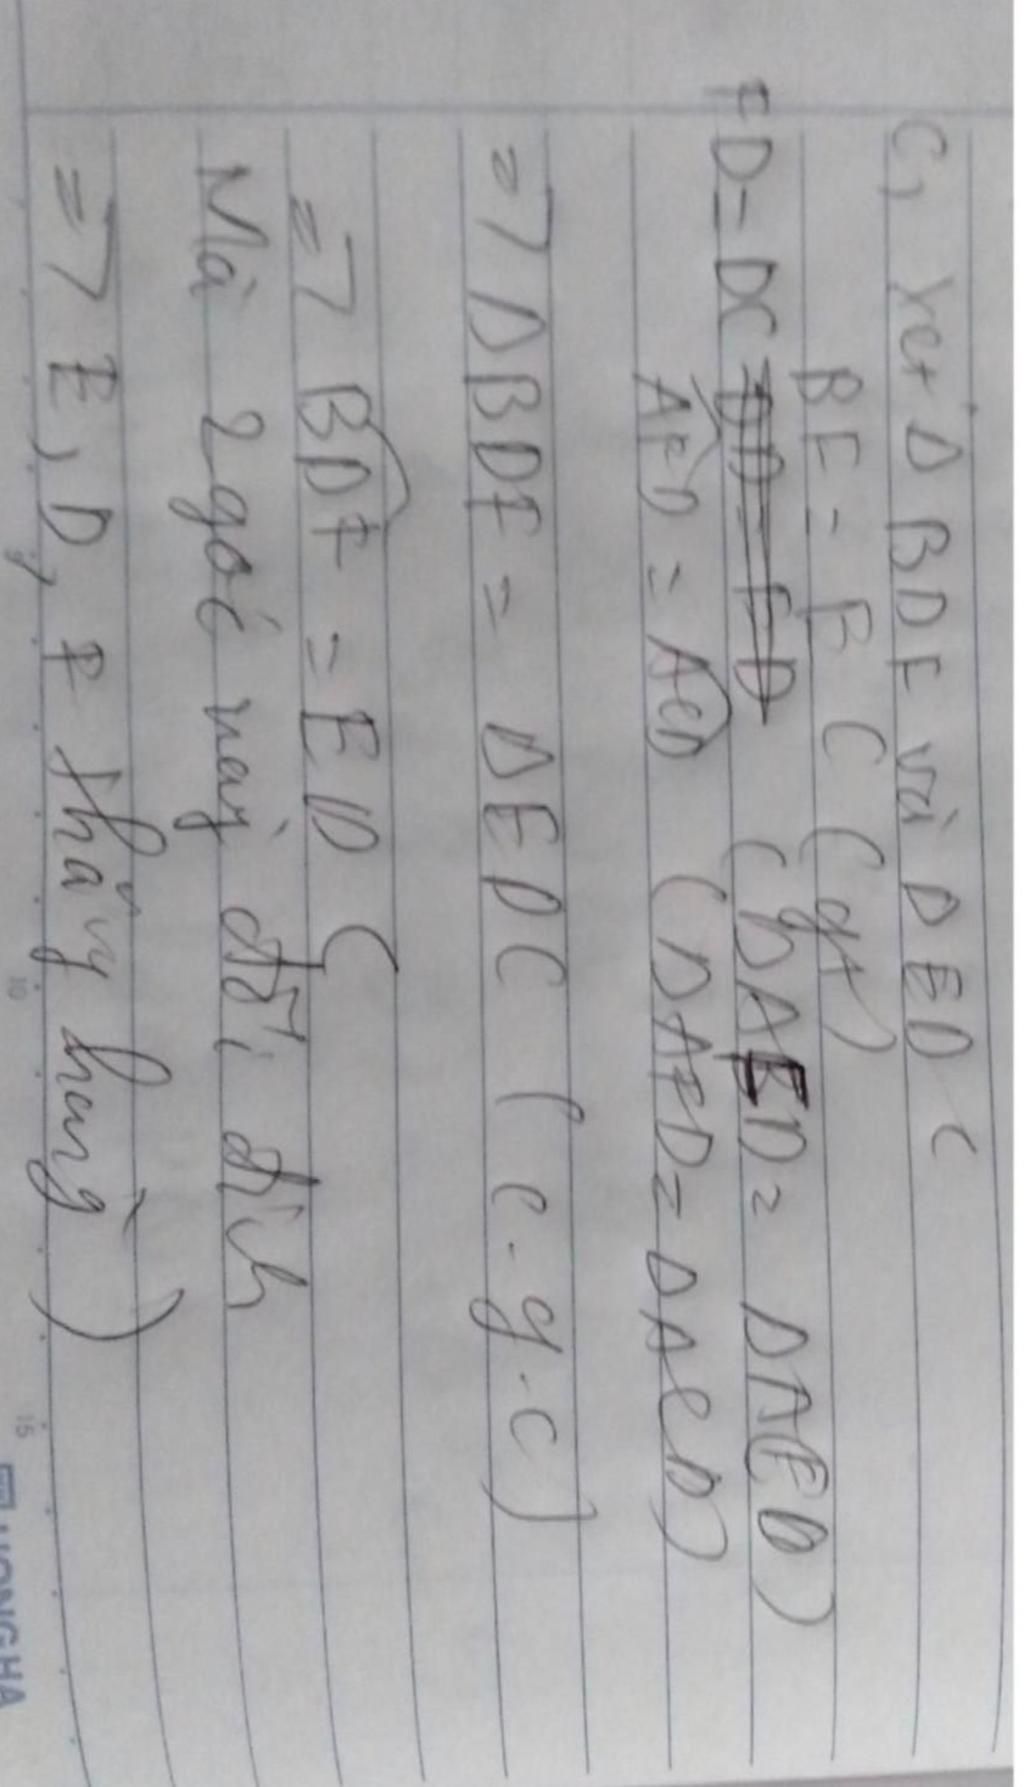 C, Xét Δ BDF và Δ EDC
BF = EC (gt)
FD = DC (ΔAFD = ΔAED)
AFD = AED (ΔAFD = ΔAED)
=> ΔBDF = ΔEDC (c-g-c)
=> BDF = EDC
Mà 2 góc này đối đỉnh
=> E, D, F thẳng hàng)
10
15
HONG HA